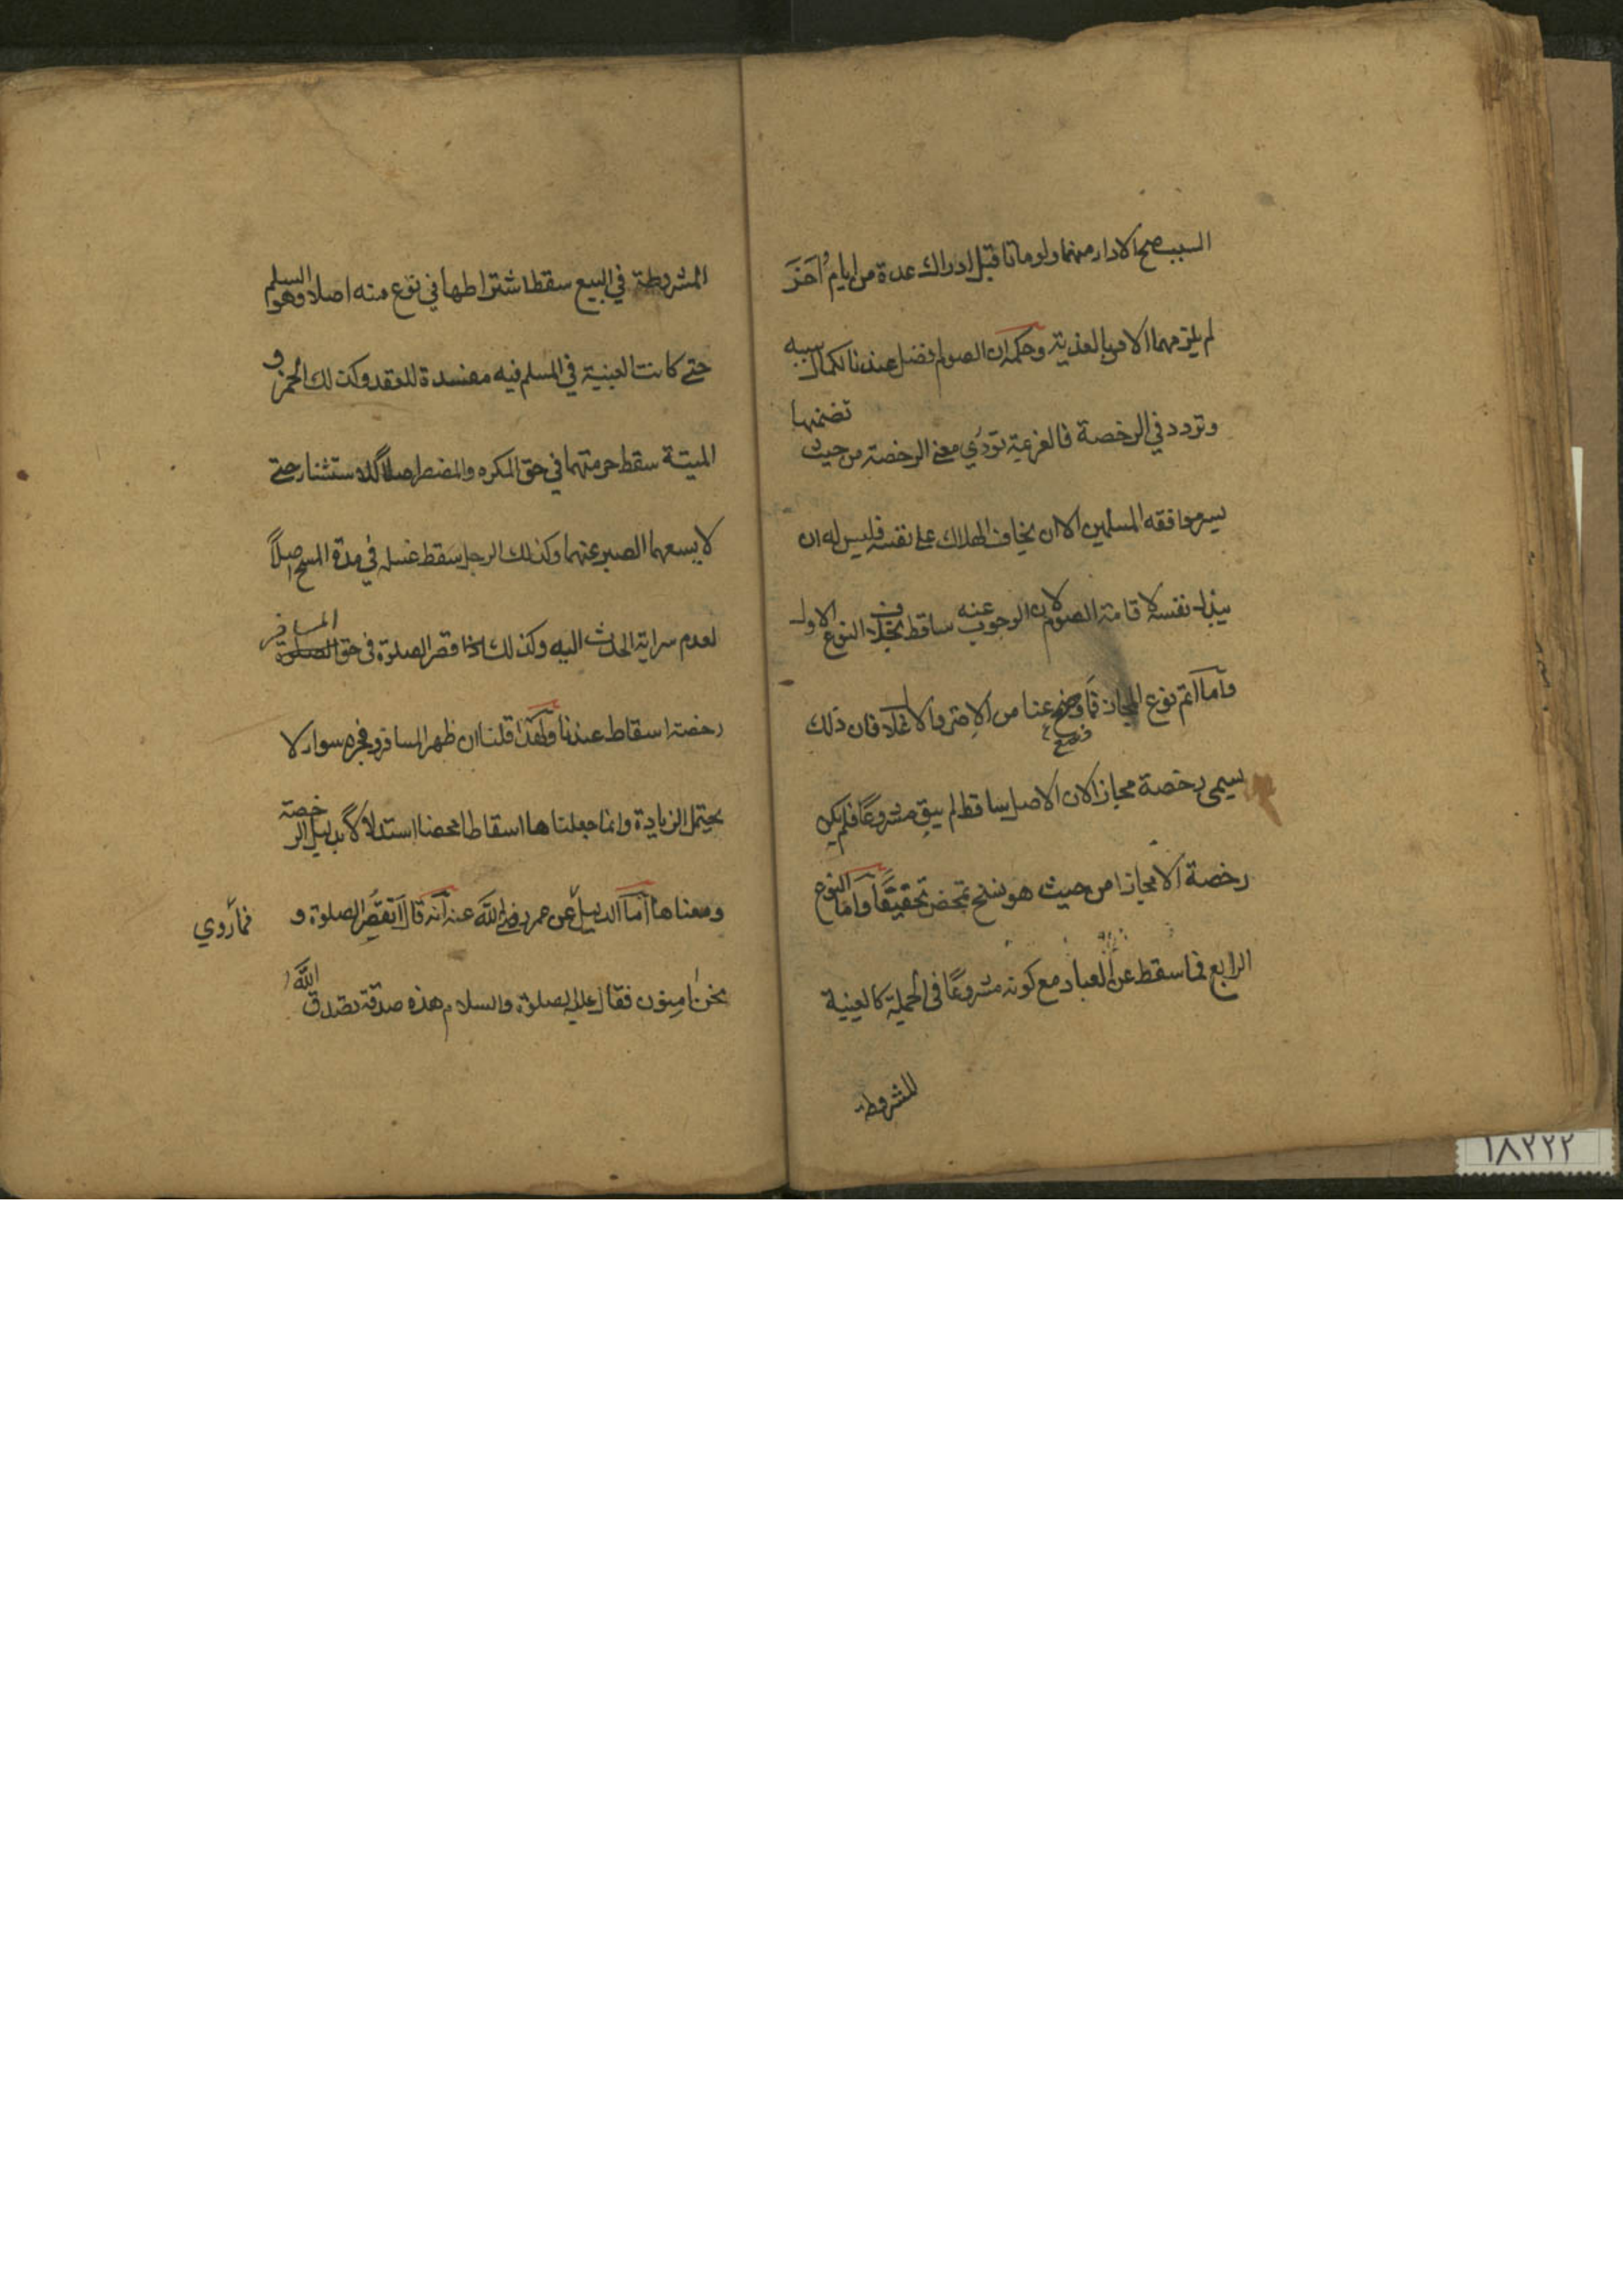 السبب صح الادار منهما ولو ماتا قبل ادراك عدة من ايام اُخَرَ
لم يلزمهما الامر بالفدية وحكمه ان الصوم افضل عندنا لكمال سببه
وتردد في الرخصة فالعزيمة تؤدي معنى الرخصة من حيث تضمنها
يسر موافقه المسلمين الا ان يخاف الهلاك على نفسه فليس له ان
يبذل نفسه لاقامة الصوم لان الوجوب عنه ساقط بخلاف النوع الاول
وأما اتم نوع المجاز فما وضع عنا من الاصر والاغلال فان ذلك
وضع
يسمى رخصة مجازا لان الاصل ساقط لم يبق مشروعًا فلم يكن
رخصة الا مجازا من حيث هو نسخ تمحض تحقيقًا وأما النوع
الرابع فما سقط عن العباد مع كونه مشروعًا في الجملة كالعينية
المشروطة
المشروطة في البيع سقط اشتراطها في نوع منه اصلا وهو السلم
حتى كانت العينية في المسلم فيه مفسدة للعقد وكذلك الخمر و
الميتة سقط حرمتهما في حق المكره والمضطر اصلاً للاستثناء حتى
لا يسعهما الصبر عنهما وكذلك الرجل سقط غسله في مدة المسح اصلاً
لعدم سراية الحدث اليه وكذلك قصر الصلوة في حق المسافر
رخصة اسقاط عندنا ولهذا قلنا ان ظهر المسافر وفجره سواء لا
يحتمل الزيادة وانما جعلناها اسقاطا محضا استدلالاً بدليل الرخصة
ومعناها أما الدليل عن عمر رضي الله عنه أنه قال أنقصر الصلوة و
فما روي
نحن امنون فقال عليه الصلوة والسلام هذه صدقة تصدق الله
١٨٢٢٢